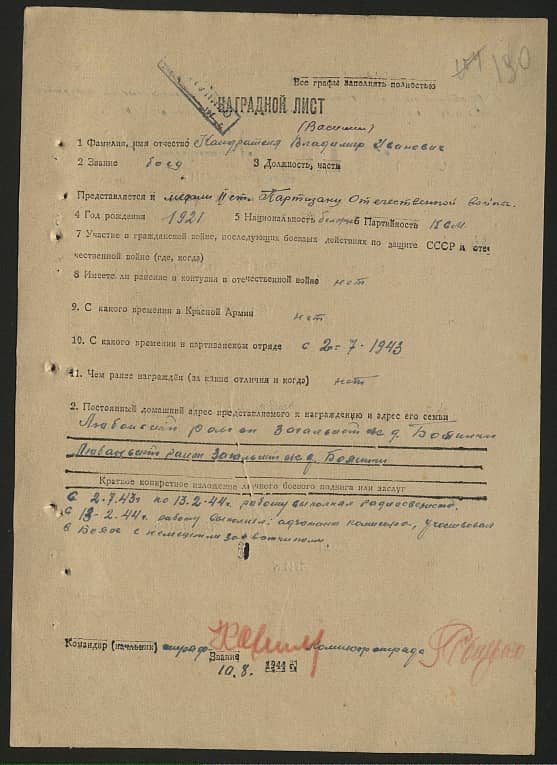 130
Все графы заполнять полностью
НАГРАДНОЙ ЛИСТ
1 Фамилия, имя отчество Владимир Иванович
2 Звание боец 3 Должность, часть
Представляется к медали II ст. Партизану Отечественной войны.
4 Год рождения 1921 5 Национальность белорус 6 Партийность
7 Участие в гражданской войне, последующих боевых действиях по защите СССР и оте
чественной войне (где, когда)
8 Имеет ли ранения и контузии в отечественной войне нет
9. С какого времени в Красной Армии нет
10. С какого времени в партизанском отряде с 2-7-1943
11. Чем ранее награжден (за какие отличия и когда) нет
2. Постоянный домашний адрес представляемого к награждению и адрес его семьи
Любанский район д.
Любанский район д.
Краткое конкретное изложение личного боевого подвига или заслуг
С 2.7.43г по 13.2-44г. работу выполнял
С 13-2-44г. работу выполнял: адъютанта комиссара, участвовал
в боях с немецкими захватчиками.
Командир (начальник) отряда Комиссар отряда
Звание
10.8. 1944 г.